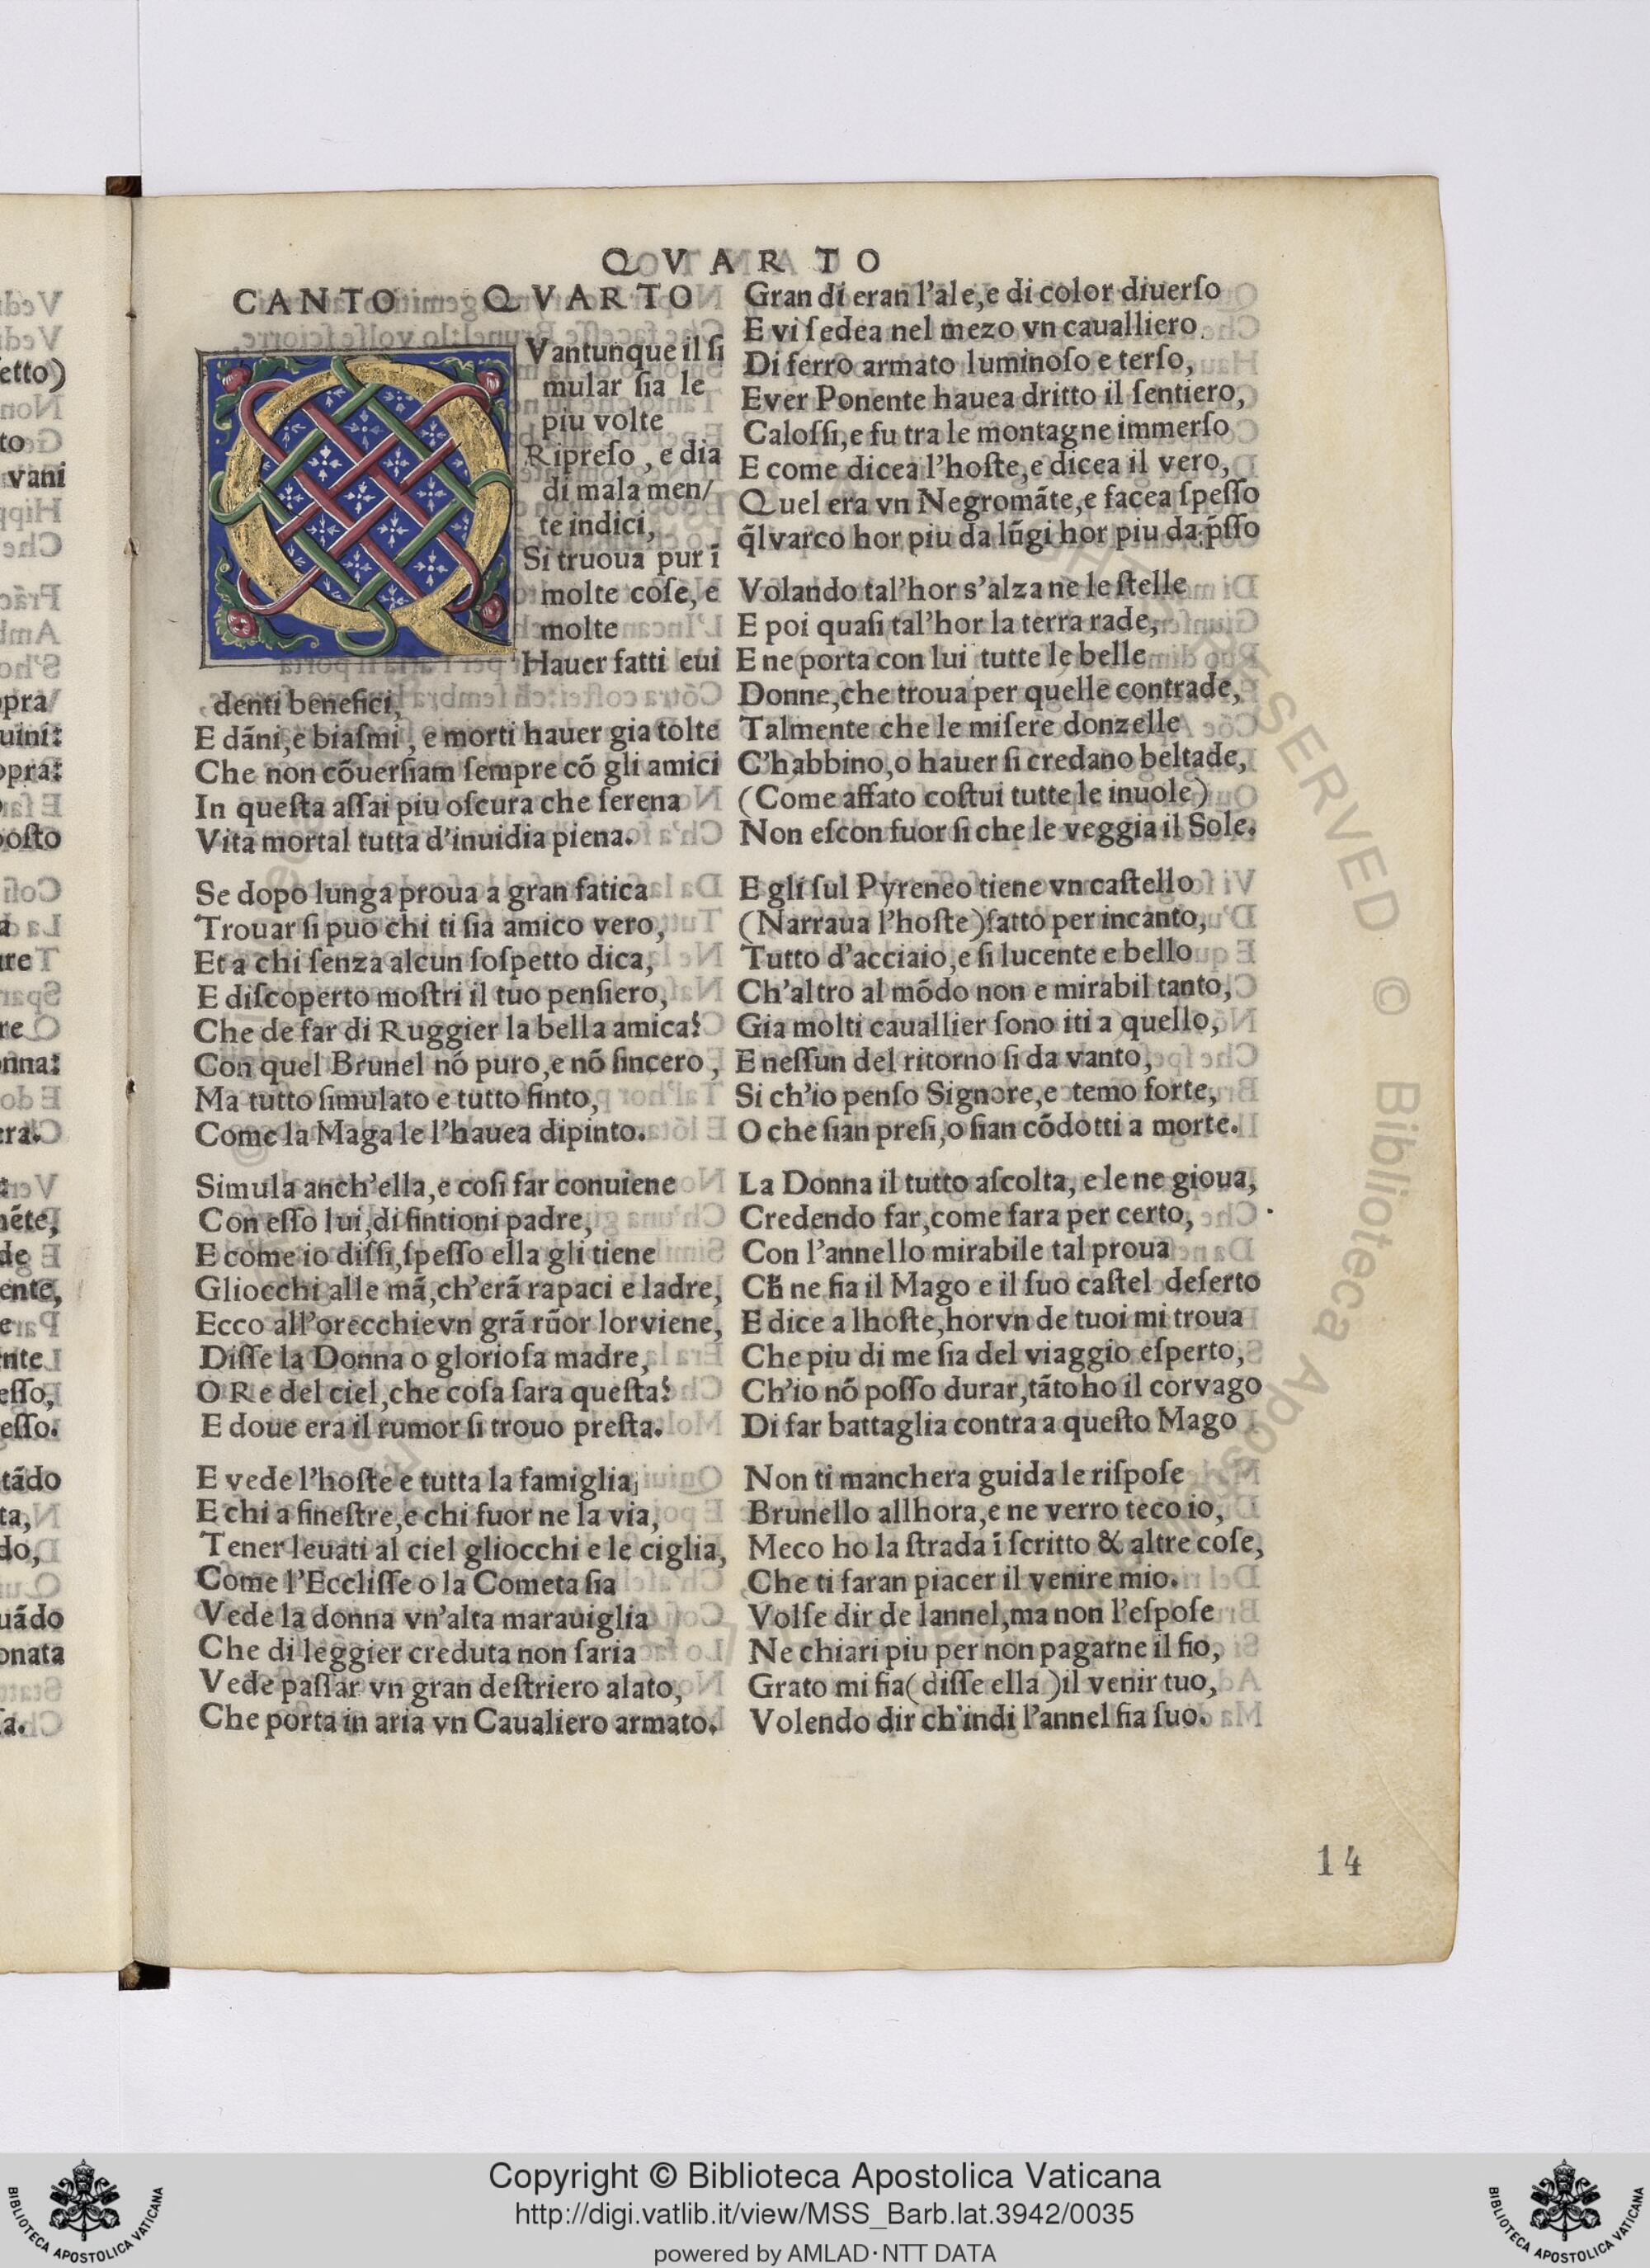 QVARTO
CANTO QVARTO
QVantunque il ſi
mular ſia le
piu volte
Ripreſo, e dia
di mala men/
te indici,
Si truoua pur ĩ
molte coſe, e
molte
Hauer fatti eui
denti benefici,
E dãni, e biaſmi, e morti hauer gia tolte
Che non cõuerſiam ſempre cõ gli amici
In queſta aſſai piu oſcura che ſerena
Vita mortal tutta d'inuidia piena.
Se dopo lunga proua a gran fatica
Trouar ſi puo chi ti ſia amico vero,
Et a chi ſenza alcun ſoſpetto dica,
E diſcoperto moſtri il tuo penſiero,
Che de far di Ruggier la bella amica?
Con quel Brunel nõ puro, e nõ ſincero,
Ma tutto ſimulato e tutto finto,
Come la Maga le l'hauea dipinto.
Simula anch'ella, e coſi far conuiene
Con eſſo lui, di fintioni padre,
E come io diſſi, ſpeſſo ella gli tiene
Gliocchi alle mã, ch'erã rapaci e ladre,
Ecco all'orecchie vn grã rũor lor viene,
Diſſe la Donna o glorioſa madre,
O Re del ciel, che coſa ſara queſta?
E doue era il rumor ſi trouo preſta.
E vede l'hoſte e tutta la famiglia,
E chi a fineſtre, e chi fuor ne la via,
Tener leuati al ciel gliocchi e le ciglia,
Come l'Eccliſſe o la Cometa ſia
Vede la donna vn'alta marauiglia
Che di leggier creduta non ſaria
Vede paſſar vn gran deſtriero alato,
Che porta in aria vn Caualiero armato.
Grandi eran l'ale, e di color diuerſo
E vi ſedea nel mezo vn caualliero
Di ferro armato luminoſo e terſo,
E ver Ponente hauea dritto il ſentiero,
Caloſſi, e fu tra le montagne immerſo
E come dicea l'hoſte, e dicea il vero,
Quel era vn Negromãte, e facea ſpeſſo
q̃l varco hor piu da lũgi hor piu da p̃ſſo
Volando tal'hor s'alza ne le ſtelle
E poi quaſi tal'hor la terra rade,
E ne porta con lui tutte le belle
Donne, che troua per quelle contrade,
Talmente che le miſere donzelle
C'habbino, o hauer ſi credano beltade,
(Come affato coſtui tutte le inuole)
Non eſcon fuor ſi che le veggia il Sole.
E gli ſul Pyreneo tiene vn caſtello
(Narraua l'hoſte) fatto per incanto,
Tutto d'acciaio, e ſi lucente e bello
Ch'altro al mõdo non e mirabil tanto,
Gia molti cauallier ſono iti a quello,
E neſſun del ritorno ſi da vanto,
Si ch'io penſo Signore, e temo forte,
O che ſian preſi, o ſian cõdotti a morte.
La Donna il tutto aſcolta, e le ne gioua,
Credendo far, come fara per certo,
Con l'annello mirabile tal proua
Cħ ne fia il Mago e il ſuo caſtel deſerto
E dice a lhoſte, hor vn de tuoi mi troua
Che piu di me ſia del viaggio eſperto,
Ch'io nõ poſſo durar, tãto ho il cor vago
Di far battaglia contra a queſto Mago
Non ti manchera guida le riſpoſe
Brunello allhora, e ne verro teco io,
Meco ho la ſtrada ĩ ſcritto & altre coſe,
Che ti faran piacer il venire mio.
Volſe dir de lannel, ma non l'eſpoſe
Ne chiari piu per non pagarne il fio,
Grato mi fia (diſſe ella) il venir tuo,
Volendo dir ch'indi l'annel fia ſuo.
14
Copyright © Biblioteca Apostolica Vaticana
http://digi.vatlib.it/view/MSS_Barb.lat.3942/0035
powered by AMLAD·NTT DATA
BIBLIOTECA APOSTOLICA VATICANA
BIBLIOTECA APOSTOLICA VATICANA